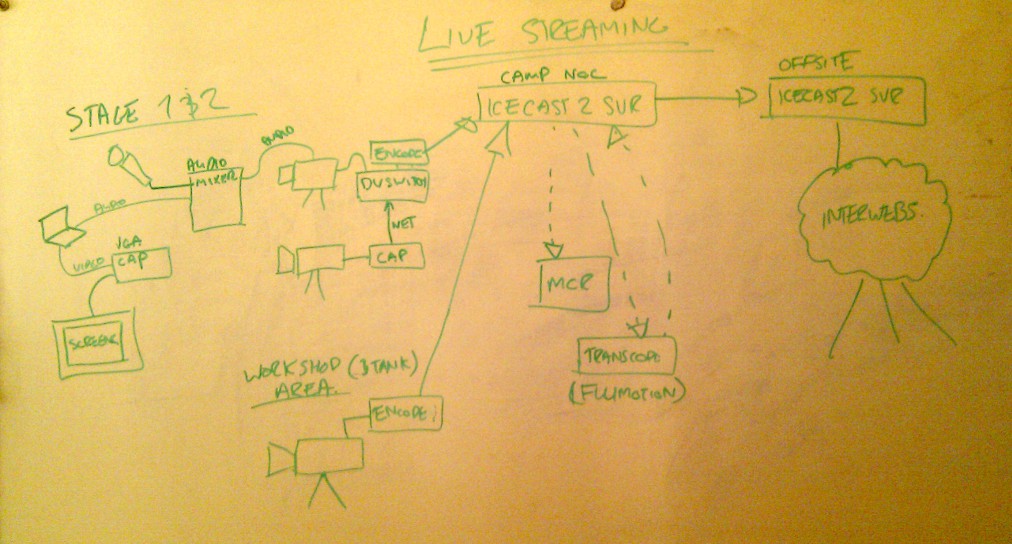 LIVE STREAMING
STAGE 1 & 2
AUDIO
MIXER
AUDIO
AUDIO
VIDEO
VGA
CAP
SCREEN
ENCODE
DVSWITCH
NET
CAP
CAMP NOC
ICECAST 2 SVR
OFFSITE
ICECAST2 SVR
INTERWEBS.
MCR
TRANSCODE
(FLUMOTION)
WORKSHOP (3 TANK)
AREA.
ENCODE